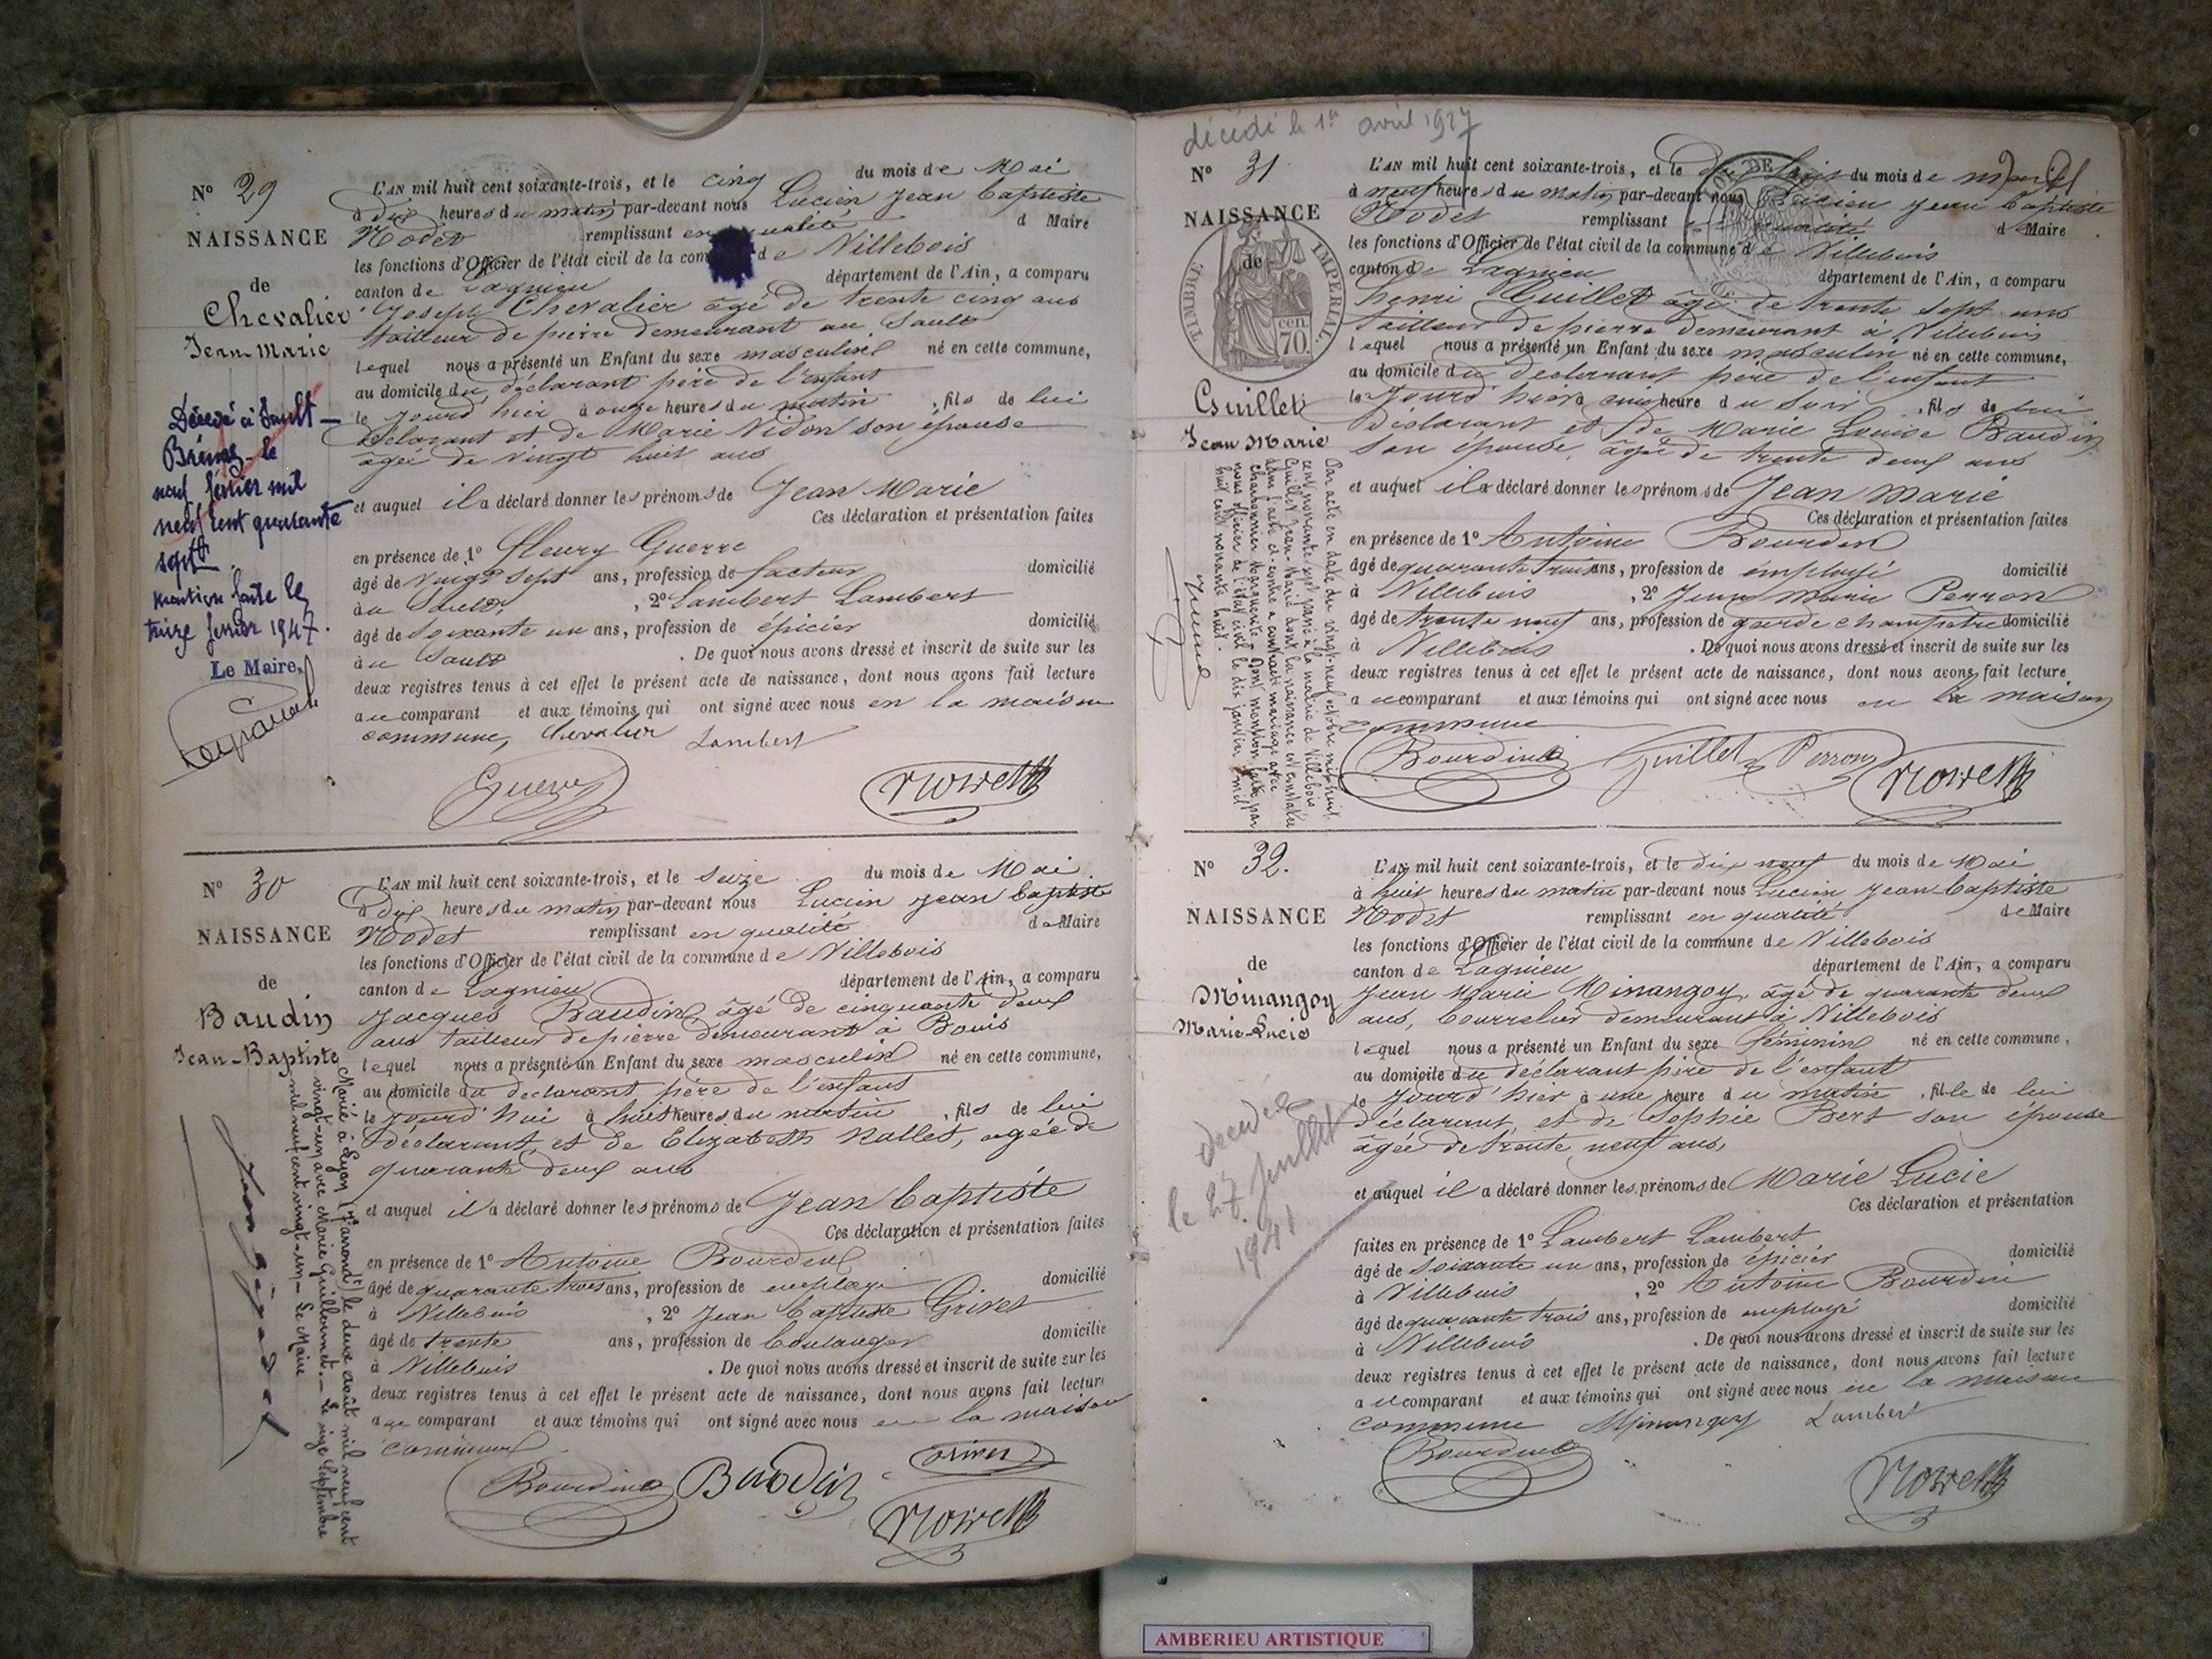 Nº 29
NAISSANCE
de
Chevalier
Jean-Marie
Décédé à Sault-
Brénaz le
neuf février mil
neuf cent quarante
sept
mention faite le
treize février 1947.
Le Maire,
L'AN mil huit cent soixante-trois, et le cinq du mois de Mai
à dix heures du matin par-devant nous Lucien Jean Baptiste
Nodet remplissant en qualité d Maire
les fonctions d'Officier de l'état civil de la com de Villebois
canton de Lagnieu département de l'Ain, a comparu
Joseph Chevalier âgé de trente cinq ans
tailleur de pierre demeurant au Sault
lequel nous a présenté un Enfant du sexe masculin né en cette commune,
au domicile du déclarant père de l'enfant
le jourd'hier à onze heures du matin, fils de lui
déclarant et de Marie Nidon son épouse
âgée de vingt huit ans
et auquel il a déclaré donner les prénoms de Jean Marie
Ces déclaration et présentation faites
en présence de 1º Fleury Guerre
âgé de vingt sept ans, profession de facteur domicilié
à au Sault, 2º Lambert Lambert
âgé de soixante un ans, profession de épicier domicilié
à au Sault . De quoi nous avons dressé et inscrit de suite sur les
deux registres tenus à cet effet le présent acte de naissance, dont nous avons fait lecture
a u comparant et aux témoins qui ont signé avec nous en la maison
commune, Chevalier Lambert
Guerre
Nº 30
NAISSANCE
de
Baudin
Jean-Baptiste
Marié à Lyon (7e arrondt) le deux août mil neuf cent
vingt-un avec Marie Guillermet. - Le seize Septembre
mil neuf cent vingt-un - Le Maire
L'AN mil huit cent soixante-trois, et le seize du mois de Mai
à dix heures du matin par-devant nous Lucien Jean Baptiste
Nodet remplissant en qualité de Maire
les fonctions d'Officier de l'état civil de la commune de Villebois
canton de Lagnieu département de l'Ain, a comparu
Jacques Baudin âgé de cinquante deux
ans tailleur de pierre demeurant à Bouis
lequel nous a présenté un Enfant du sexe masculin né en cette commune,
au domicile du déclarant père de l'enfant
le jourd'hui à huit heures du matin, fils de lui
déclarant et de Elizabeth Nallet, agée de
quarante deux ans
et auquel il a déclaré donner les prénoms de Jean Baptiste
Ces déclaration et présentation faites
en présence de 1º Antoine Bourdin
âgé de quarante trois ans, profession de employé domicilié
à Villebois, 2º Jean Baptiste Grivet
âgé de trente ans, profession de boulanger domicilié
à Villebois . De quoi nous avons dressé et inscrit de suite sur les
deux registres tenus à cet effet le présent acte de naissance, dont nous avons fait lecture
a u comparant et aux témoins qui ont signé avec nous en la maison
commune
Bourdin Baudin Grivet
décédé le 1er avril 1927
Nº 31
NAISSANCE
de
TIMBRE IMPÉRIAL
70 cen.
Guillet
Jean Marie
Par acte en date du vingt-neuf octobre mil huit
cent nonante-sept passé à la mairie de Villebois
Guillet Jean-Marie dont la naissance est constatée
dans l'acte ci-contre a contracté mariage avec
Charbonnier Marguerite. Dont mention faite par
nous officier de l'état civil le dix janvier mil
huit cent nonante huit.
L'AN mil huit cent soixante-trois, et le du mois de
à neuf heures du matin par-devant nous Lucien Jean Baptiste
Nodet remplissant en qualité d Maire
les fonctions d'Officier de l'état civil de la commune de Villebois
canton de Lagnieu département de l'Ain, a comparu
Henri Guillet âgé de trente sept ans
tailleur de pierre demeurant à Villebois
lequel nous a présenté un Enfant du sexe masculin né en cette commune,
au domicile du déclarant père de l'enfant
le jourd'hier à cinq heure du soir, fils de lui
déclarant et de Marie Louise Baudin
son épouse, âgée de trente deux ans
et auquel il a déclaré donner les prénoms de Jean Marie
Ces déclaration et présentation faites
en présence de 1º Antoine Bourdin
âgé de quarante trois ans, profession de employé domicilié
à Villebois, 2º Jean Marie Perron
âgé de trente neuf ans, profession de garde champêtre domicilié
à Villebois . De quoi nous avons dressé et inscrit de suite sur les
deux registres tenus à cet effet le présent acte de naissance, dont nous avons fait lecture
a u comparant et aux témoins qui ont signé avec nous en la maison
commune
Bourdin Guillet Perron
Nº 32.
NAISSANCE
de
Minangoy
Marie-Lucie
décédée
le 27 juillet
1941
L'AN mil huit cent soixante-trois, et le dix neuf du mois de Mai
à huit heures du matin par-devant nous Lucien Jean Baptiste
Nodet remplissant en qualité de Maire
les fonctions d'Officier de l'état civil de la commune de Villebois
canton de Lagnieu département de l'Ain, a comparu
Jean Marie Minangoy, âgé de quarante deux
ans, bourrelier demeurant à Villebois
lequel nous a présenté un Enfant du sexe féminin né en cette commune,
au domicile du déclarant père de l'enfant
le jourd'hier à une heure du matin, fille de lui
déclarant, et de Sophie Bert son épouse
âgée de trente neuf ans,
et auquel il a déclaré donner les prénoms de Marie Lucie
Ces déclaration et présentation
faites en présence de 1º Lambert Lambert
âgé de soixante un ans, profession de épicier domicilié
à Villebois, 2º Antoine Bourdin
âgé de quarante trois ans, profession de employé domicilié
à Villebois . De quoi nous avons dressé et inscrit de suite sur les
deux registres tenus à cet effet le présent acte de naissance, dont nous avons fait lecture
a u comparant et aux témoins qui ont signé avec nous en la maison
commune Minangoy Lambert
Bourdin
AMBERIEU ARTISTIQUE